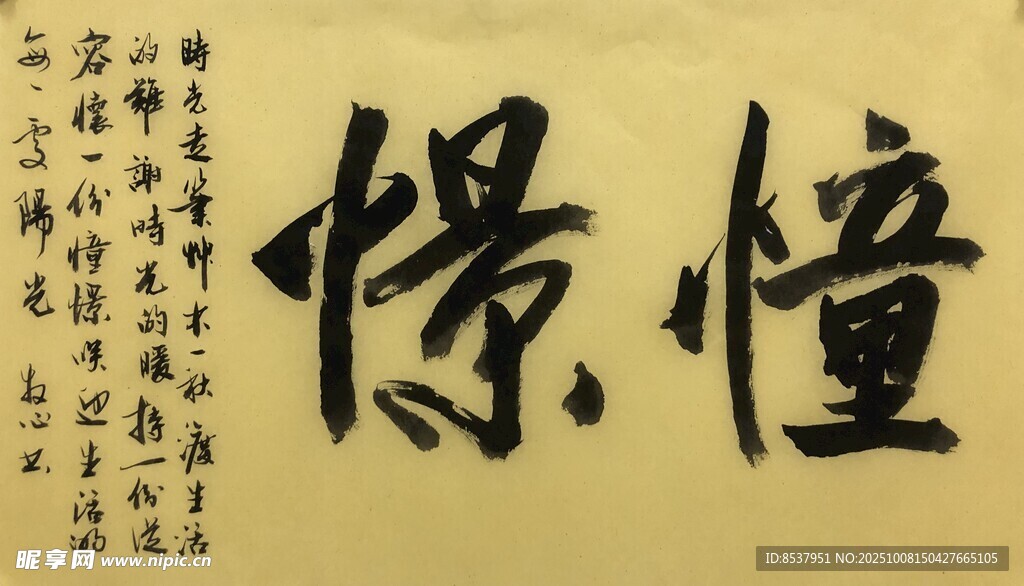 憧憬
時光走筆艸木一秋渡生活
的難 謝時光的暖 持一份從
容懷一份憧憬笑迎生活的
每一處陽光 牧心书
昵享网 www.nipic.cn
ID:8537951 NO:20251008150427665105